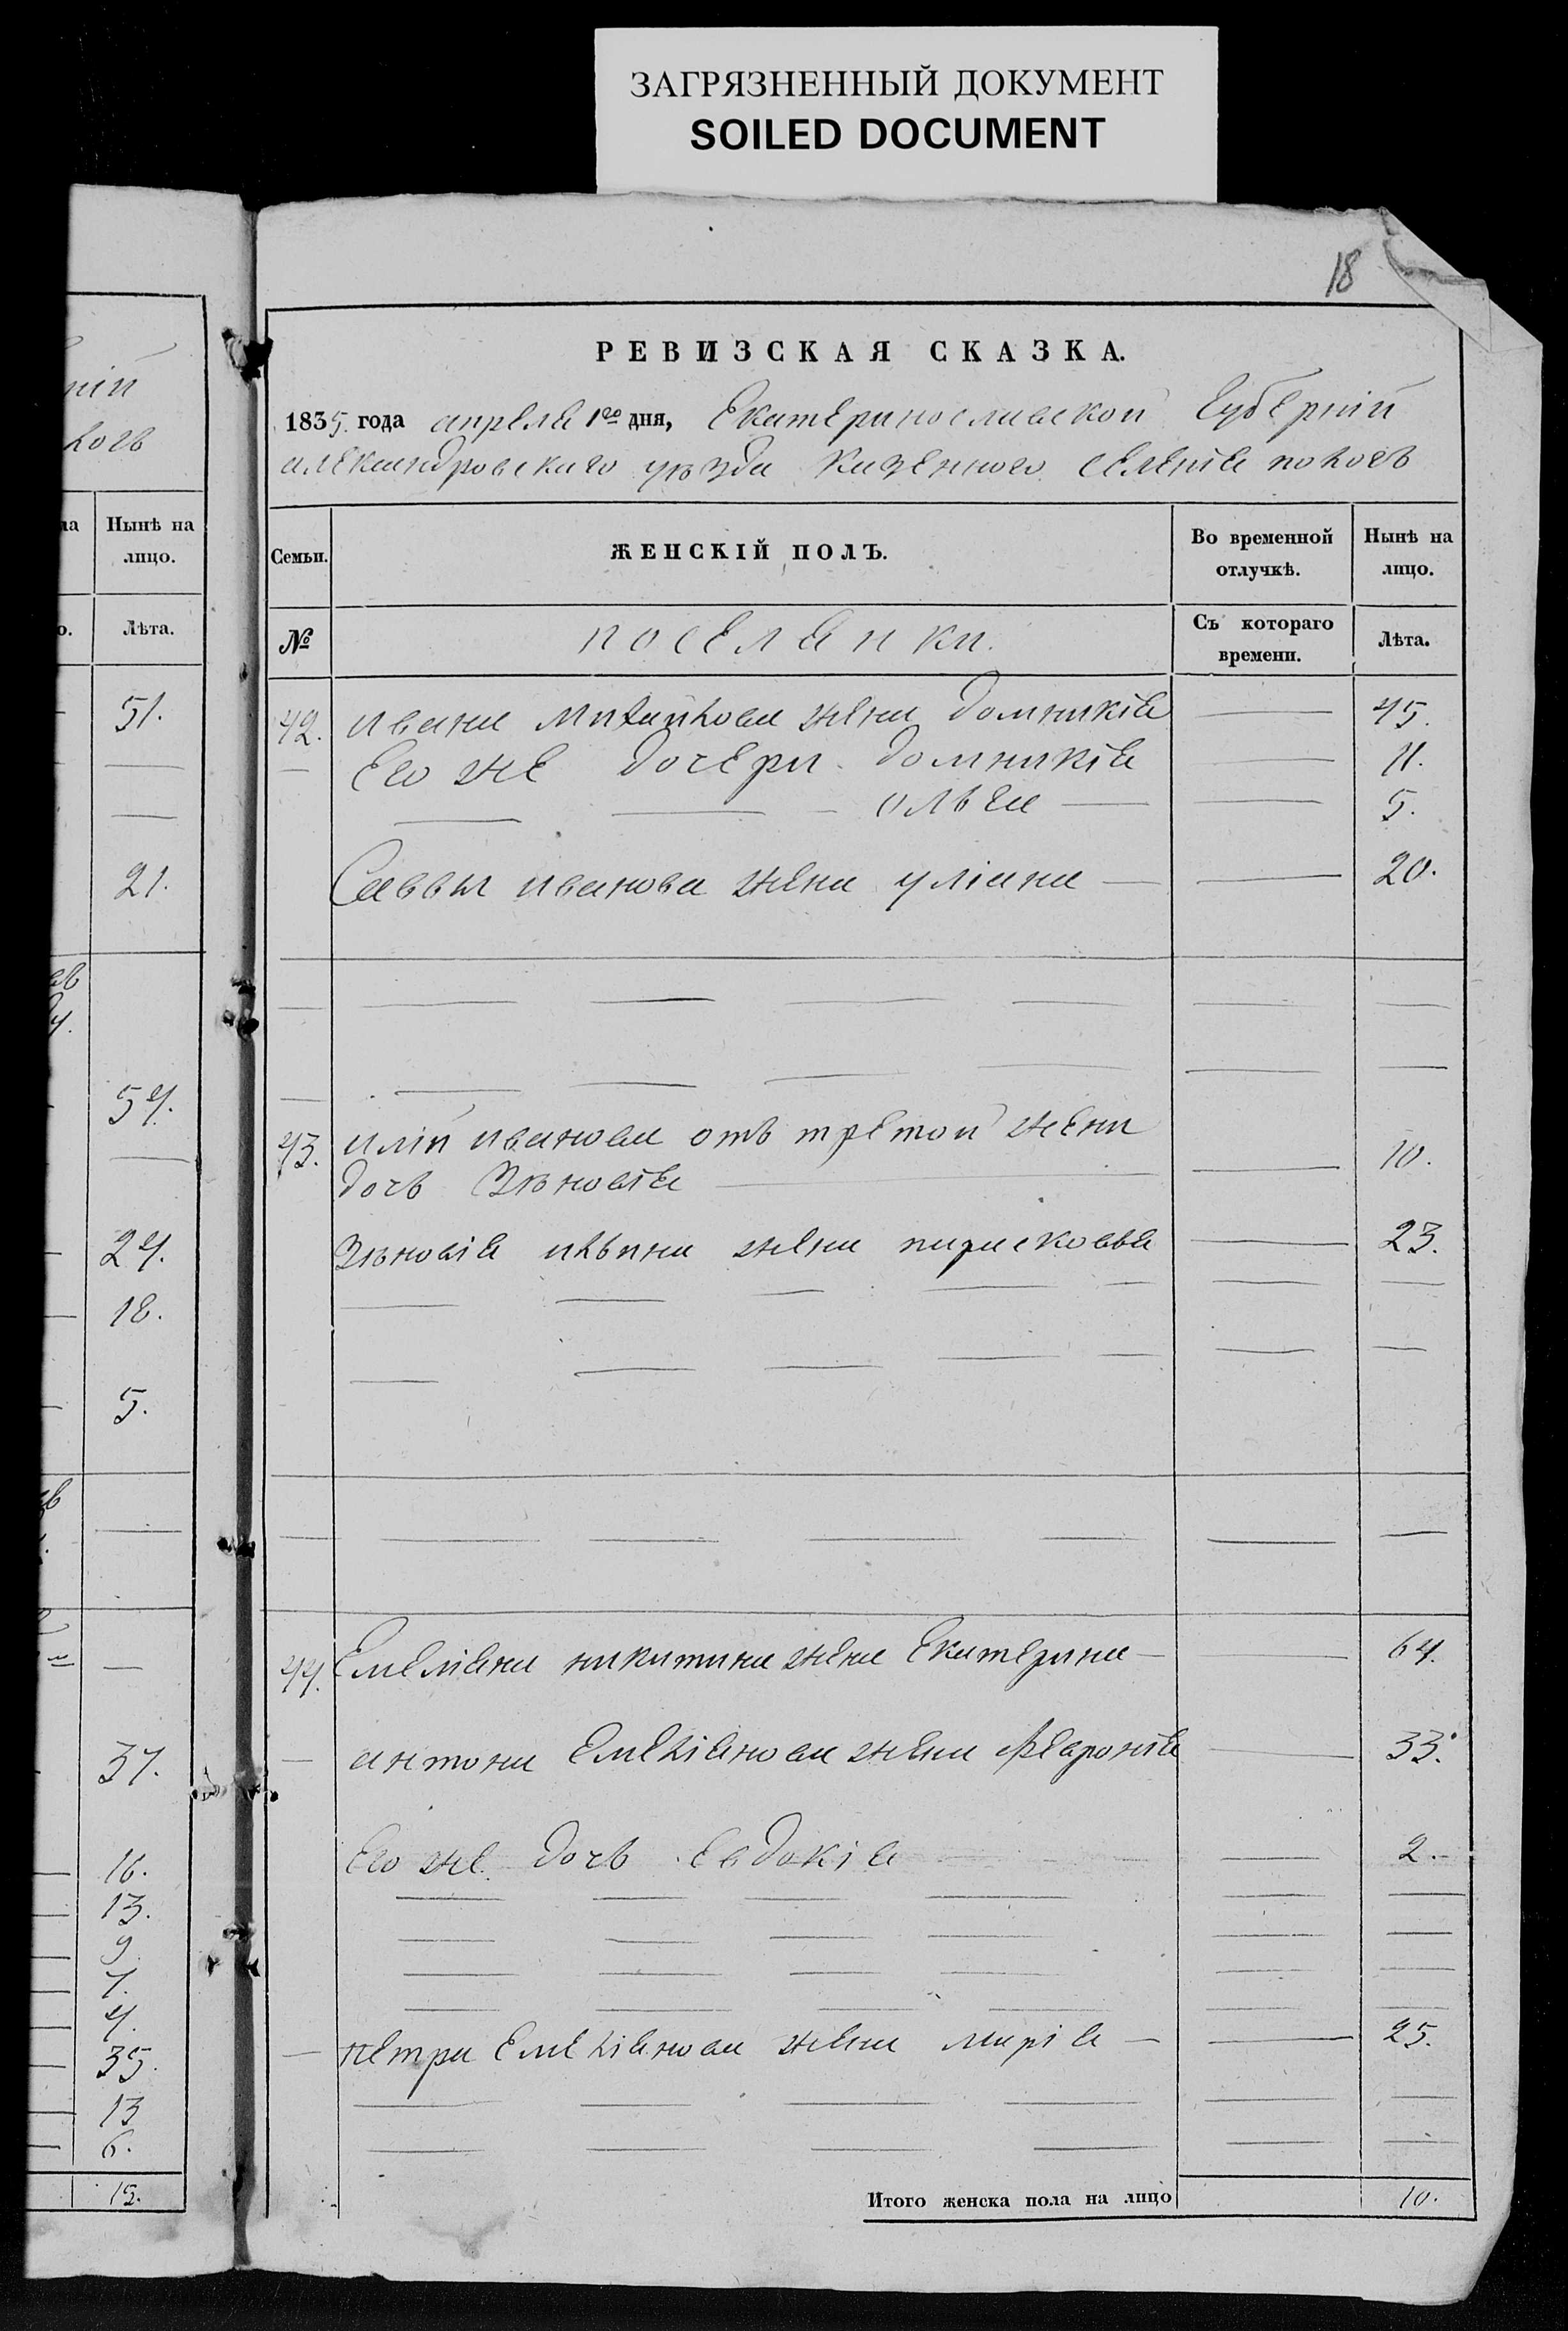 ЗАГРЯЗНЕННЫЙ ДОКУМЕНТ
SOILED DOCUMENT
18
РЕВИЗСКАЯ СКАЗКА.
1835 года апреля 1го дня, Екатеринославской Губерніи
александровскаго уѣзда казенного селенія
Семьи. ЖЕНСКІЙ ПОЛЪ. Во временной отлучкѣ. Нынѣ на лицо.
№ поселянки. Съ котораго времени. Лѣта.
42. ивана жена домникія 45.
Его же дочери домникія 11.
ольга 5.
Саввы иванова жена уліана 20.
43. иліи иванова отъ третой жены
дочь Зѣновія 10.
Зѣновія жена парасковья 23.
44. Емеліана никитина жена Екатерина 64.
антона Емеліанова жена Февронія 33.
Его же дочь Евдокія 2.
петра Емеліанова жена марія 25.
Итого женска пола на лицо 10.
ній
Нынѣ на
лицо.
Лѣта.
51.
21.
54.
24.
18.
5.
37.
16.
13.
9
7.
4.
35.
13
6.
15.